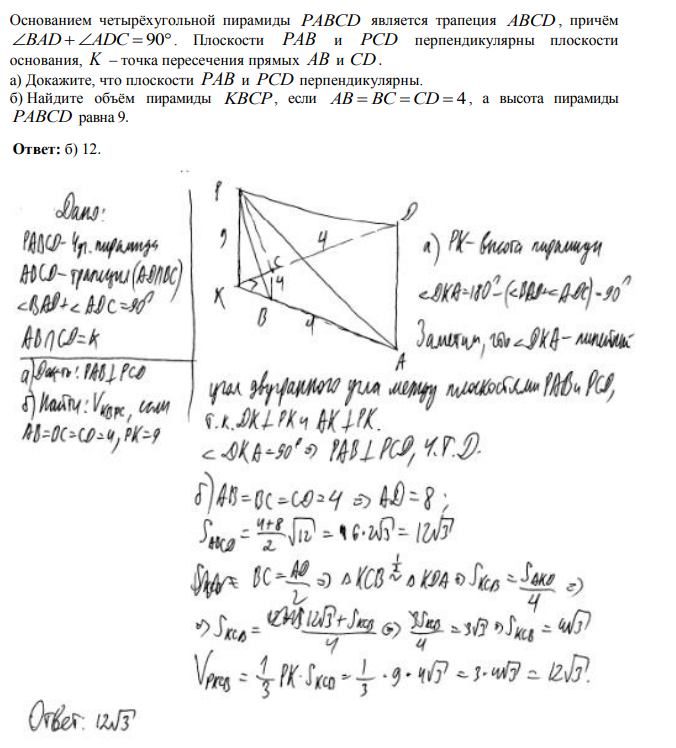 Основанием четырёхугольной пирамиды PABCD является трапеция ABCD, причём
∠BAD + ∠ADC = 90°. Плоскости PAB и PCD перпендикулярны плоскости
основания, K – точка пересечения прямых AB и CD.
а) Докажите, что плоскости PAB и PCD перпендикулярны.
б) Найдите объём пирамиды KBCP, если AB = BC = CD = 4, а высота пирамиды
PABCD равна 9.
Ответ: б) 12.
Дано:
PABCD - 4уг. пирамида
ABCD - трапеция (AD∩BC)
∠BAD+∠ADC=90°
AB∩CD=K
а) Док-ть: PAB⊥PCD
б) Найти: V, если
AB=BC=CD=4, PK=9
P
D
9
4
C
K
4
B
4
A
а) PK - высота пирамиды
∠DKA=180°-(∠BAD+∠ADC)=90°
Заметим, что ∠DKA - линейный
угол двугранного угла между плоскостями PAB и PCD,
т.к. DK⊥PK и AK⊥PK.
∠DKA=90° ⇒ PAB⊥PCD, ч.т.д.
б) AB=BC=CD=4 ⇒ AD=8;
S_ABCD = (4+8)/2 √12 = 6·2√3 = 12√3
BC = AD/2 ⇒ △KCB ~ △KDA ⇒ S_KCB = S_AKD/4 ⇒
⇒ S_KCB = (12√3 + S_KCB)/4 ⇒ 3S_KCB/4 = 3√3 ⇒ S_KCB = 4√3
V_PKCB = 1/3 PK·S_KCB = 1/3 · 9 · 4√3 = 3·4√3 = 12√3.
Ответ: 12√3